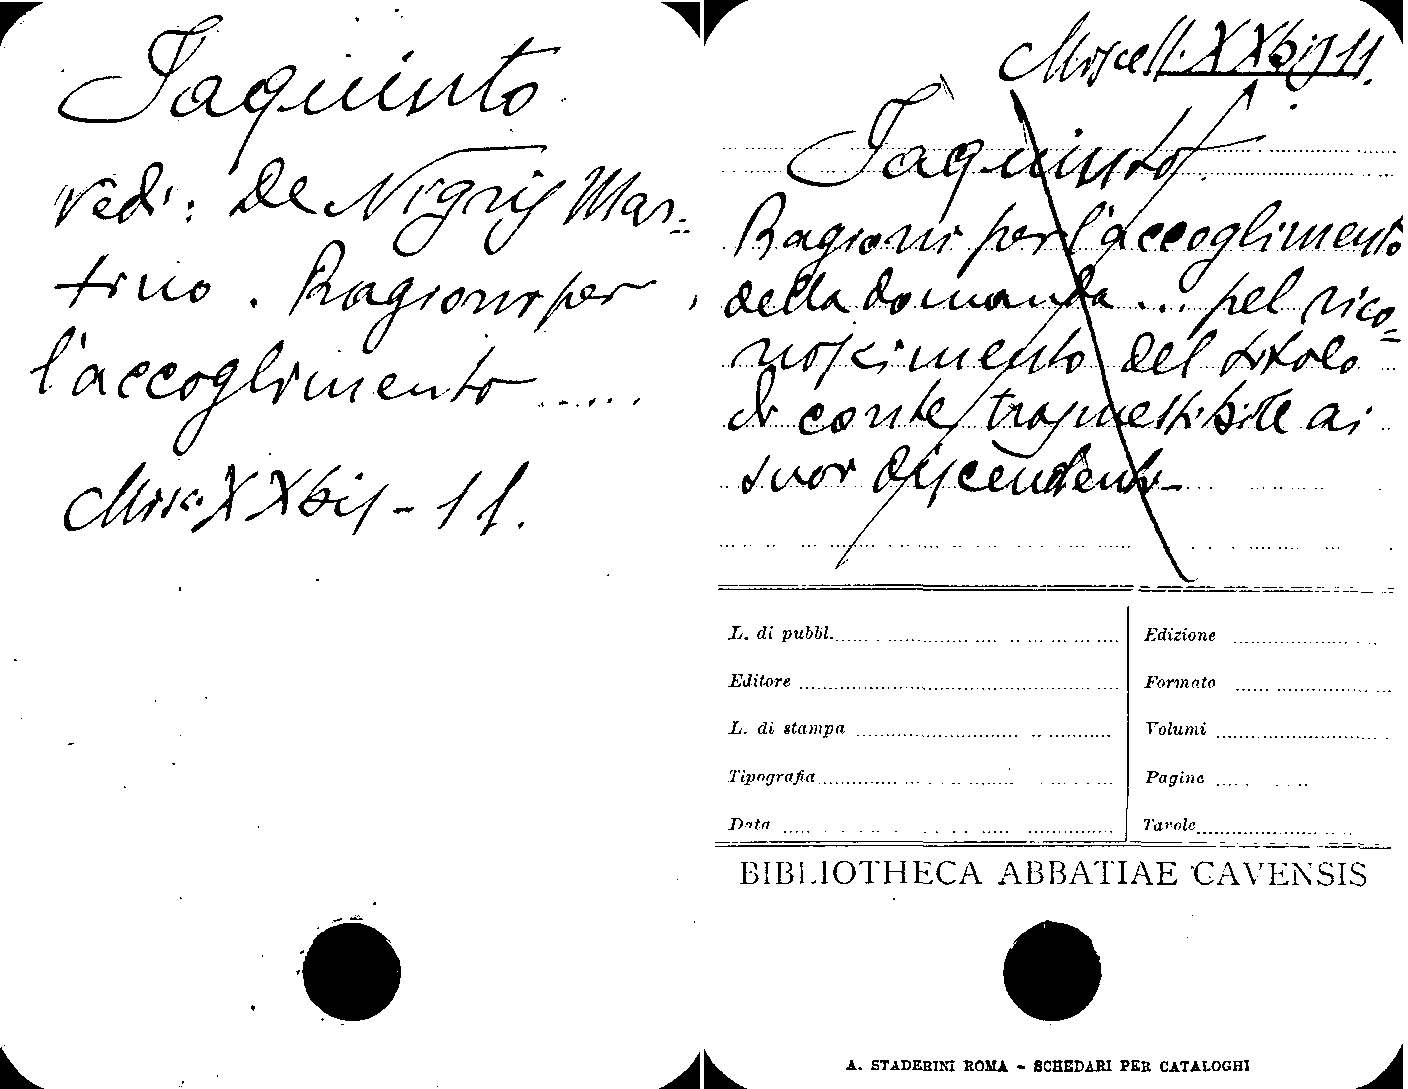 Jaquinto
vedi: De Nigris Mar=
tino. Ragioni per
l'accoglimento .....
Misc. XXbis - 11.
Miscell. XXbis 11.
Jaquinto
Ragioni per l'accoglimento
della domanda ... pel rico=
noscimento del titolo
di conte trasmestibile ai
suoi discendenti
L. di pubbl.
Edizione
Editore
Formato
L. di stampa
Volumi
Tipografia
Pagine
Data
Tavole
BIBLIOTHECA ABBATIAE CAVENSIS
A. STADERINI ROMA - SCHEDARI PER CATALOGHI